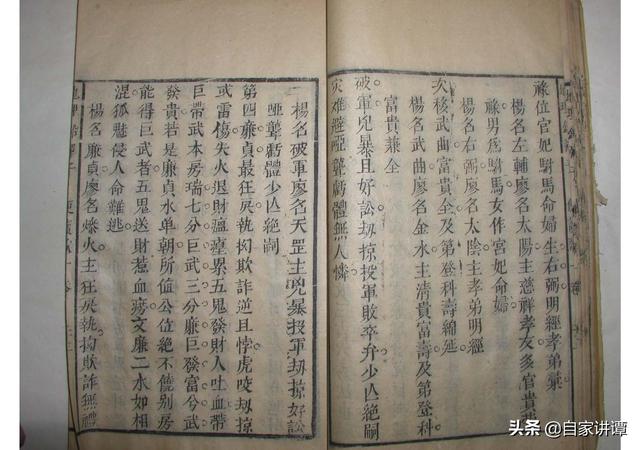 祿位官妃駙馬命婦生右弼明經孝弟兼
楊名左輔廖名太陽主慈祥孝友多官貴
祿男爲駙馬女作宮妃命婦
楊名右弼廖名太陰主孝弟明經
次移武曲富貴全及第登科壽綿延
楊名武曲廖名金水主清貴富壽及第登科
富貴兼全
破軍兇暴且好訟劫掠投軍敗卒弁少亾絕嗣
災難避瘂聾虧體無人憐
楊名破軍廖名天罡主兇暴投軍劫掠好訟
瘂聾虧體少亾絕嗣
第四廉貞最狂執拗欺詐逆且悖虎咬劫掠
或雷傷失火退財瘟累五鬼發財人吐血帶
巨帶武本房瑞七分巨武三分廉巨發富兮武
發貴若是廉貞水单朝所值公位絕不饒別房
能得巨武者五鬼送財惹血癆文廉二水如相
混狐魅侵人命難逃
楊名廉貞廖名燥火主狂執拗欺詐無禮
头条 @自家讲谭